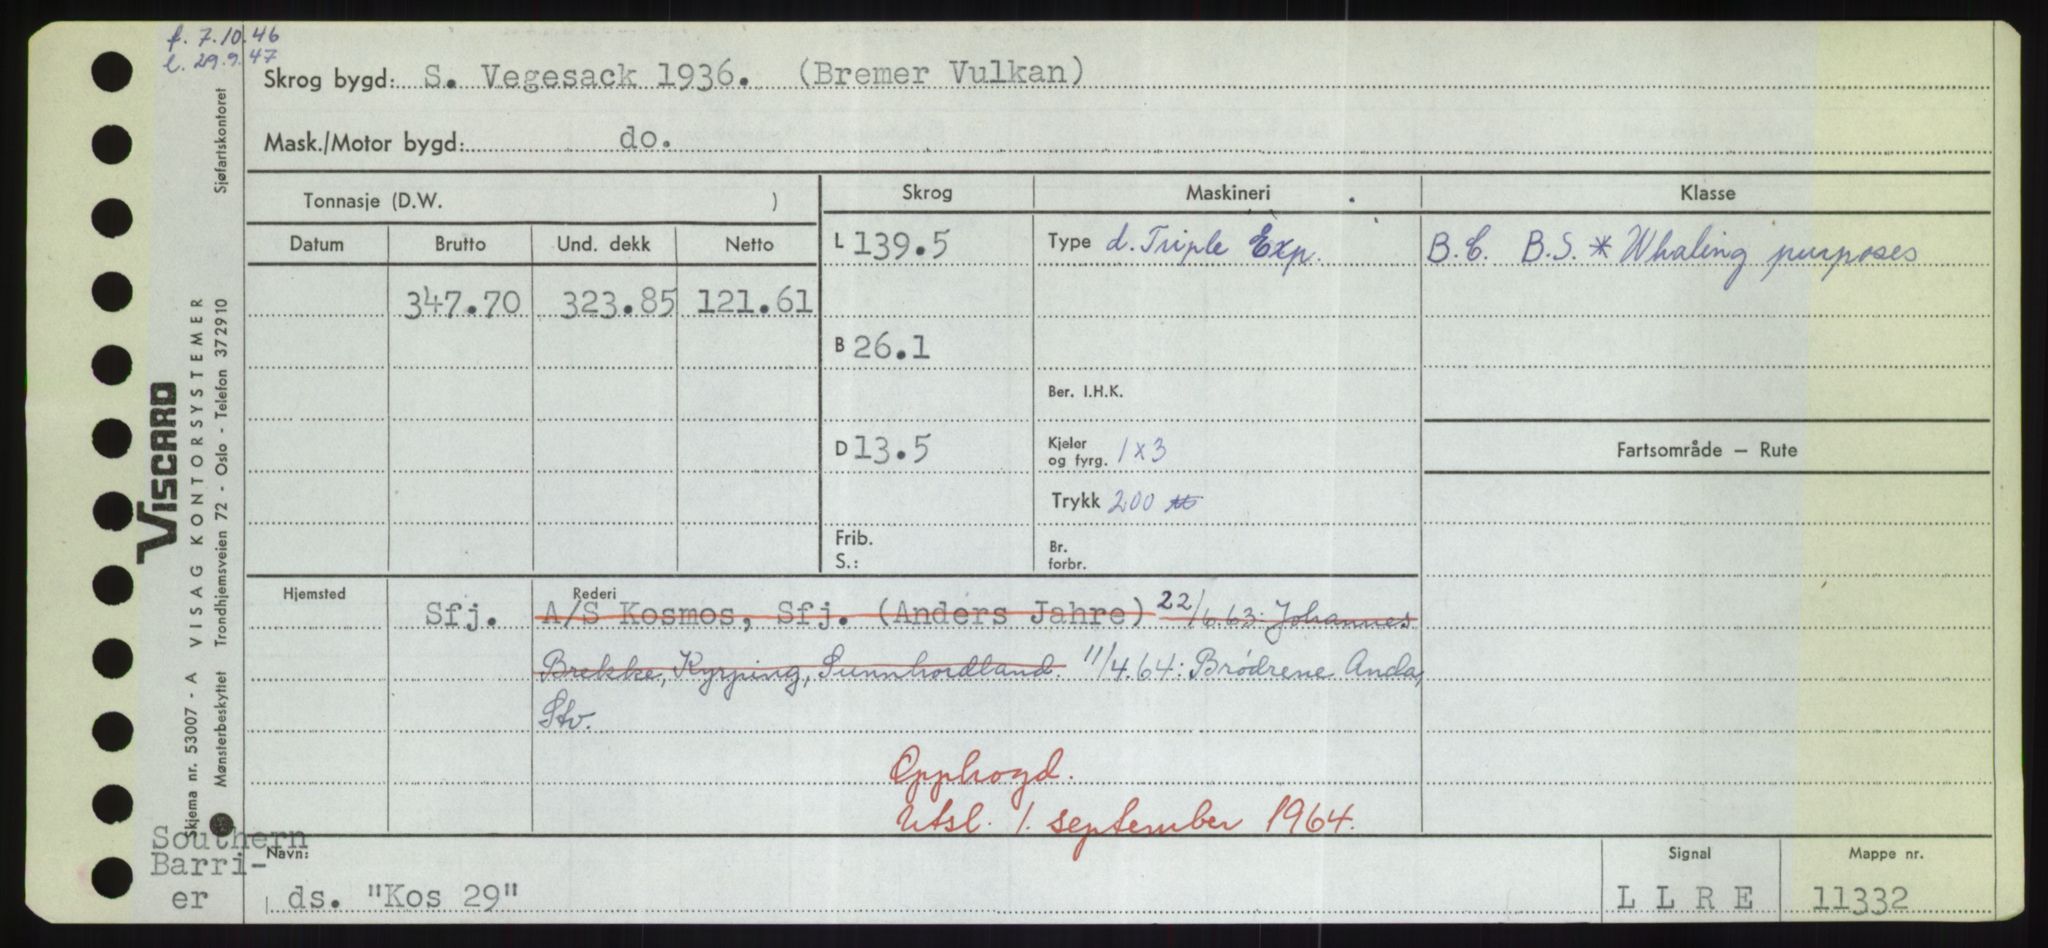 f. 7.10.46
l. 29.9.47
Skrog bygd: S. Vegesack 1936. (Bremer Vulkan)
Mask./Motor bygd: do.
Tonnasje (D.W. )
Skrog
Maskineri
Klasse
Datum
Brutto
Und. dekk
Netto
L 139.5
Type d. Triple Exp.
B.C. B.S. * Whaling purposes
347.70
323.85
121.61
B 26.1
Ber. I.H.K.
D 13.5
Kjeler
og fyrg. 1x3
Fartsområde – Rute
Trykk 200 lb
Frib.
S.:
Br.
forbr.
Hjemsted
Rederi
Sfj.
A/S Kosmos, Sfj. (Anders Jahre) 22/6.63: Johannes
Brekke, Kyrping, Sunnhordland. 11/4.64: Brödrene Anda,
Stv.
Opphogd.
Utsl. 1. september 1964.
Southern
Barri-
er
Navn:
ds. "Kos 29"
Signal
L L R E
Mappe nr.
11332
Skjema nr. 53007 - A VISAG KONTORSYSTEMER
Mønsterbeskyttet Trondhjemsveien 72 - Oslo - Telefon 372910 Sjøfartskontoret
VISCARD